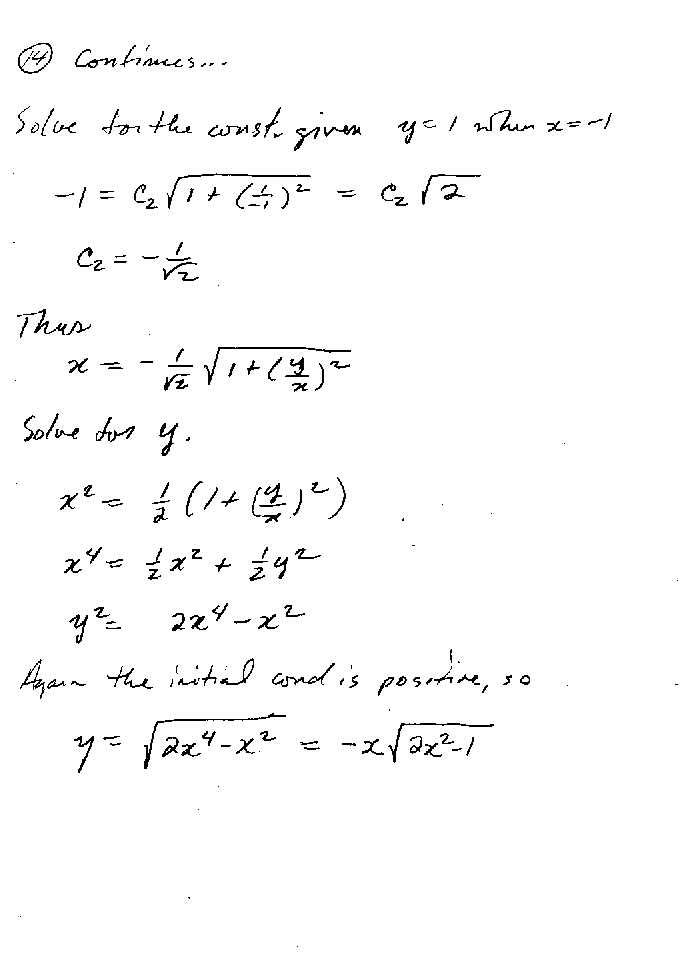 ⑭ Continues...
Solve for the const. given y = 1 when x = -1
-1 = C₂√(1 + (1/-1)²) = C₂√2
C₂ = -1/√2
Thus
x = -1/√2 √(1 + (y/x)²)
Solve for y.
x² = 1/2 (1 + (y/x)²)
x⁴ = 1/2 x² + 1/2 y²
y² = 2x⁴ - x²
Again the initial cond is positive, so
y = √(2x⁴ - x²) = -x√(2x² - 1)